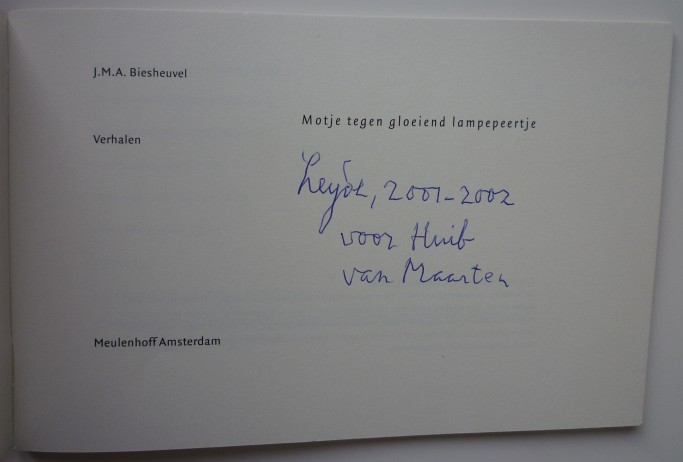 J.M.A. Biesheuvel
Motje tegen gloeiend lampepeertje
Verhalen
Leyde, 2001-2002
voor Huib
van Maarten
Meulenhoff Amsterdam